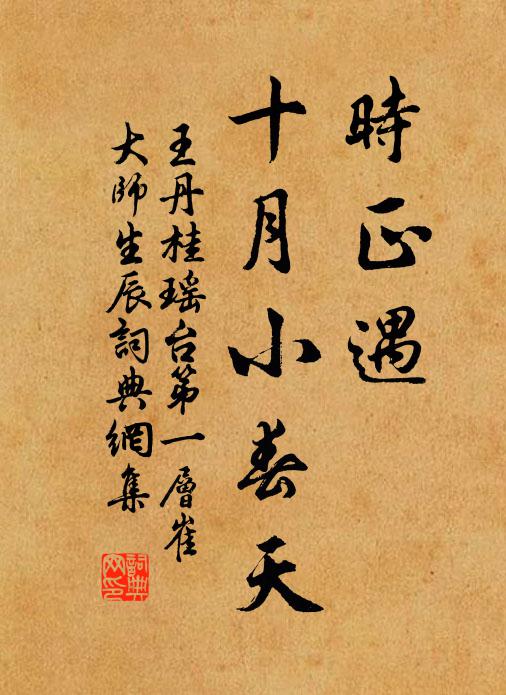 時正遇
十月小春天
王丹桂瑶台第一層崔
大師生辰詞典網集
詞典
网印